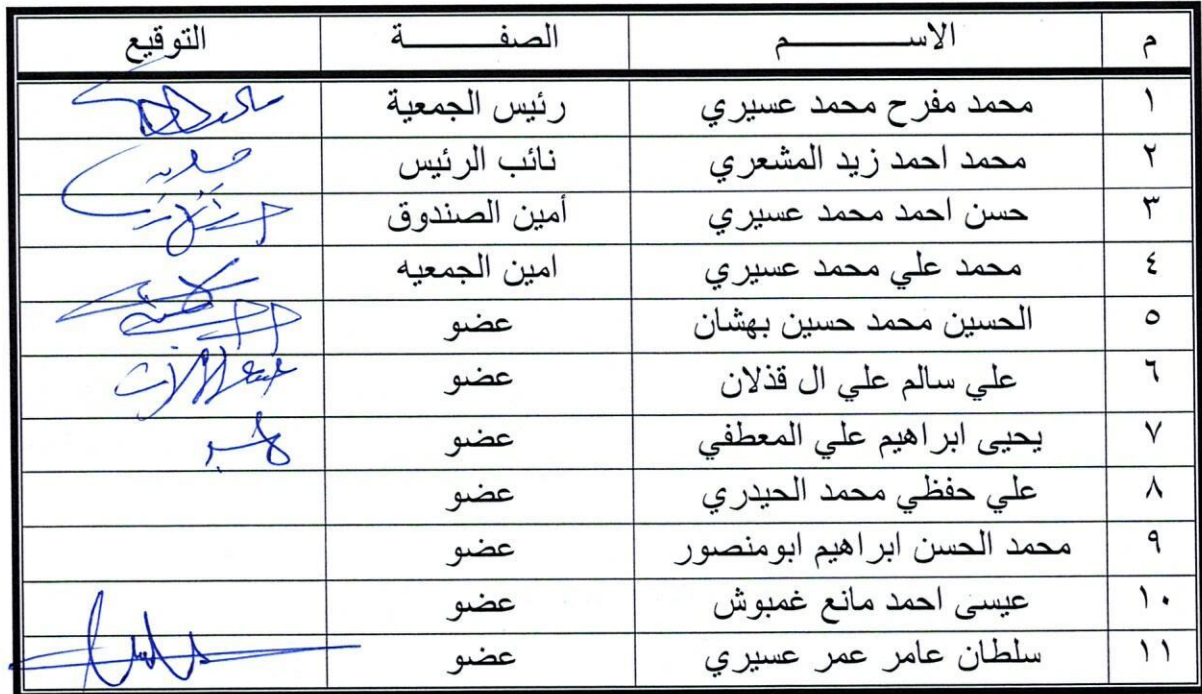 م الاســـــــــم الصفـــــــــة التوقيع
١ محمد مفرح محمد عسيري رئيس الجمعية
٢ محمد احمد زيد المشعري نائب الرئيس
٣ حسن احمد محمد عسيري أمين الصندوق
٤ محمد علي محمد عسيري امين الجمعيه
٥ الحسين محمد حسين بهشان عضو
٦ علي سالم علي ال قذلان عضو
٧ يحيى ابراهيم علي المعطفي عضو
٨ علي حفظي محمد الحيدري عضو
٩ محمد الحسن ابراهيم ابومنصور عضو
١٠ عيسى احمد مانع غمبوش عضو
١١ سلطان عامر عمر عسيري عضو